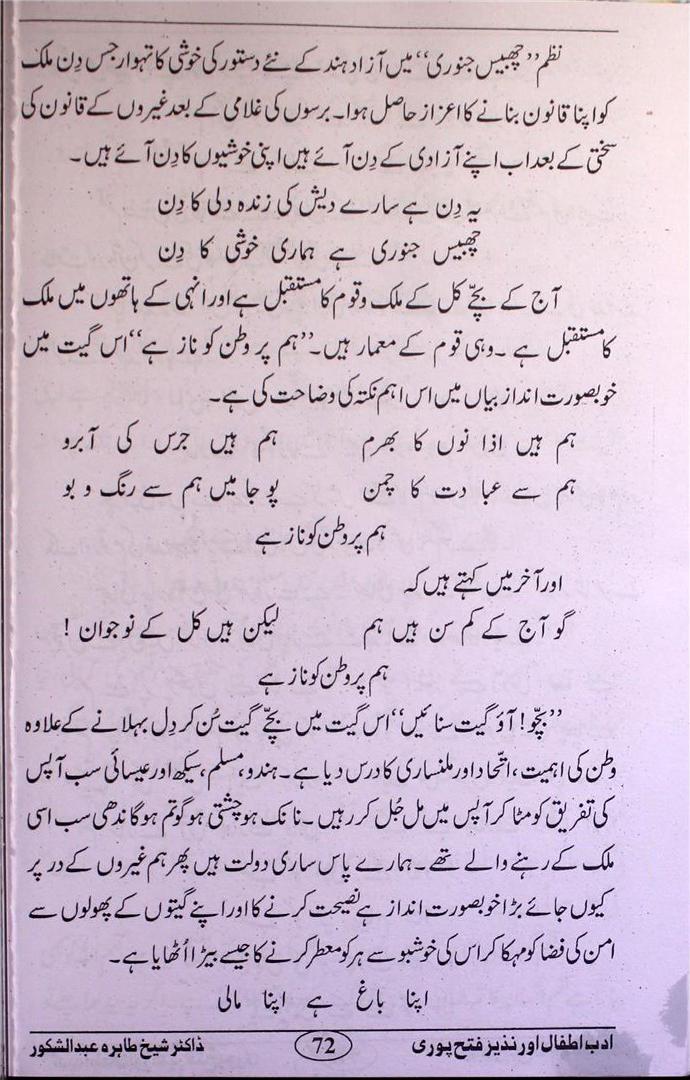 نظم ”چھبیس جنوری“ میں آزاد ہند کے نئے دستور کی خوشی کا تہوار جس دِن ملک
کو اپنا قانون بنانے کا اعزاز حاصل ہوا۔ برسوں کی غلامی کے بعد غیروں کے قانون کی
سختی کے بعد اب اپنے آزادی کے دِن آئے ہیں اپنی خوشیوں کا دِن آئے ہیں۔
یہ دِن ہے سارے دیش کی زندہ دلی کا دِن
چھبیس جنوری ہے ہماری خوشی کا دِن
آج کے بچّے کل کے ملک وقوم کا مستقبل ہے اور انہی کے ہاتھوں میں ملک
کا مستقبل ہے ۔ وہی قوم کے معمار ہیں۔ ”ہم پر وطن کو ناز ہے“ اس گیت میں
خوبصورت انداز بیاں میں اس اہم نکتہ کی وضاحت کی ہے۔
ہم ہیں اذا نوں کا بھرم ہم ہیں جرس کی آبرو
ہم سے عبا دت کا چمن پو جا میں ہم سے رنگ و بو
ہم پر وطن کو ناز ہے
اور آخر میں کہتے ہیں کہ
گو آج کے کم سن ہیں ہم لیکن ہیں کل کے نوجوان !
ہم پر وطن کو ناز ہے
”بچّو! آؤ گیت سنائیں“ اس گیت میں بچّے گیت سُن کر دِل بہلانے کے علاوہ
وطن کی اہمیت ، اتّحاد اور ملنساری کا درس دیا ہے۔ ہندو، مسلم، سیکھ اور عیسائی سب آپس
کی تفریق کو مٹا کر آپس میں مل جُل کر رہیں ۔ نانک ہو چشتی ہو گوتم ہو گاندھی سب اسی
ملک کے رہنے والے تھے۔ ہمارے پاس ساری دولت ہیں پھر ہم غیروں کے در پر
کیوں جائے بڑا خوبصورت انداز ہے نصیحت کرنے کا اور اپنے گیتوں کے پھولوں سے
امن کی فضا کو مہکا کر اس کی خوشبو سے ہر کو معطر کرنے کا جیسے بیڑا اُٹھایا ہے۔
اپنا باغ ہے اپنا مالی
ادب اطفال اور نذیر فتح پوری 72 ڈاکٹر شیخ طاہرہ عبدالشکور